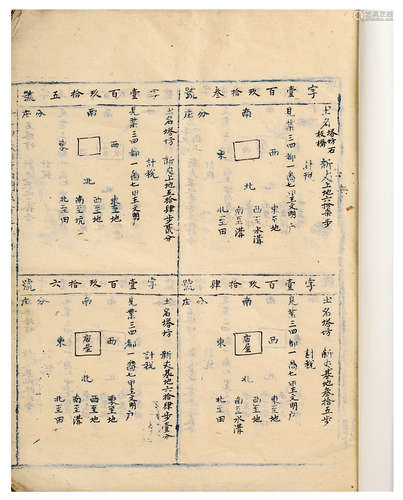 字壹百玖拾叁號
土名塔坊石板橋
新丈上地六拾柒步
計稅
見業三四都一啚七甲王文明戶
分庄
南
西
東
北
東至地
西至水溝
南至溝
北至田
字壹百玖拾肆號
土名塔坊
新丈基地叁拾五步
計稅
見業三四都一啚七甲王文明戶
分庄
南
西
東
北
東至地
西至地
南至水溝
北至田
字壹百玖拾五號
土名塔坊
新丈上地五拾肆步貳分
計稅
見業三四都一啚七甲王文明戶
分庄
南
西
東
北
東至地
西至地
南至坑
北至田
字壹百玖拾六號
土名塔坊
新丈基地六拾肆步壹分
計稅
見業三四都一啚七甲王文明戶
分庄
南
西
東
北
東至地
西至地
南至溝
北至田